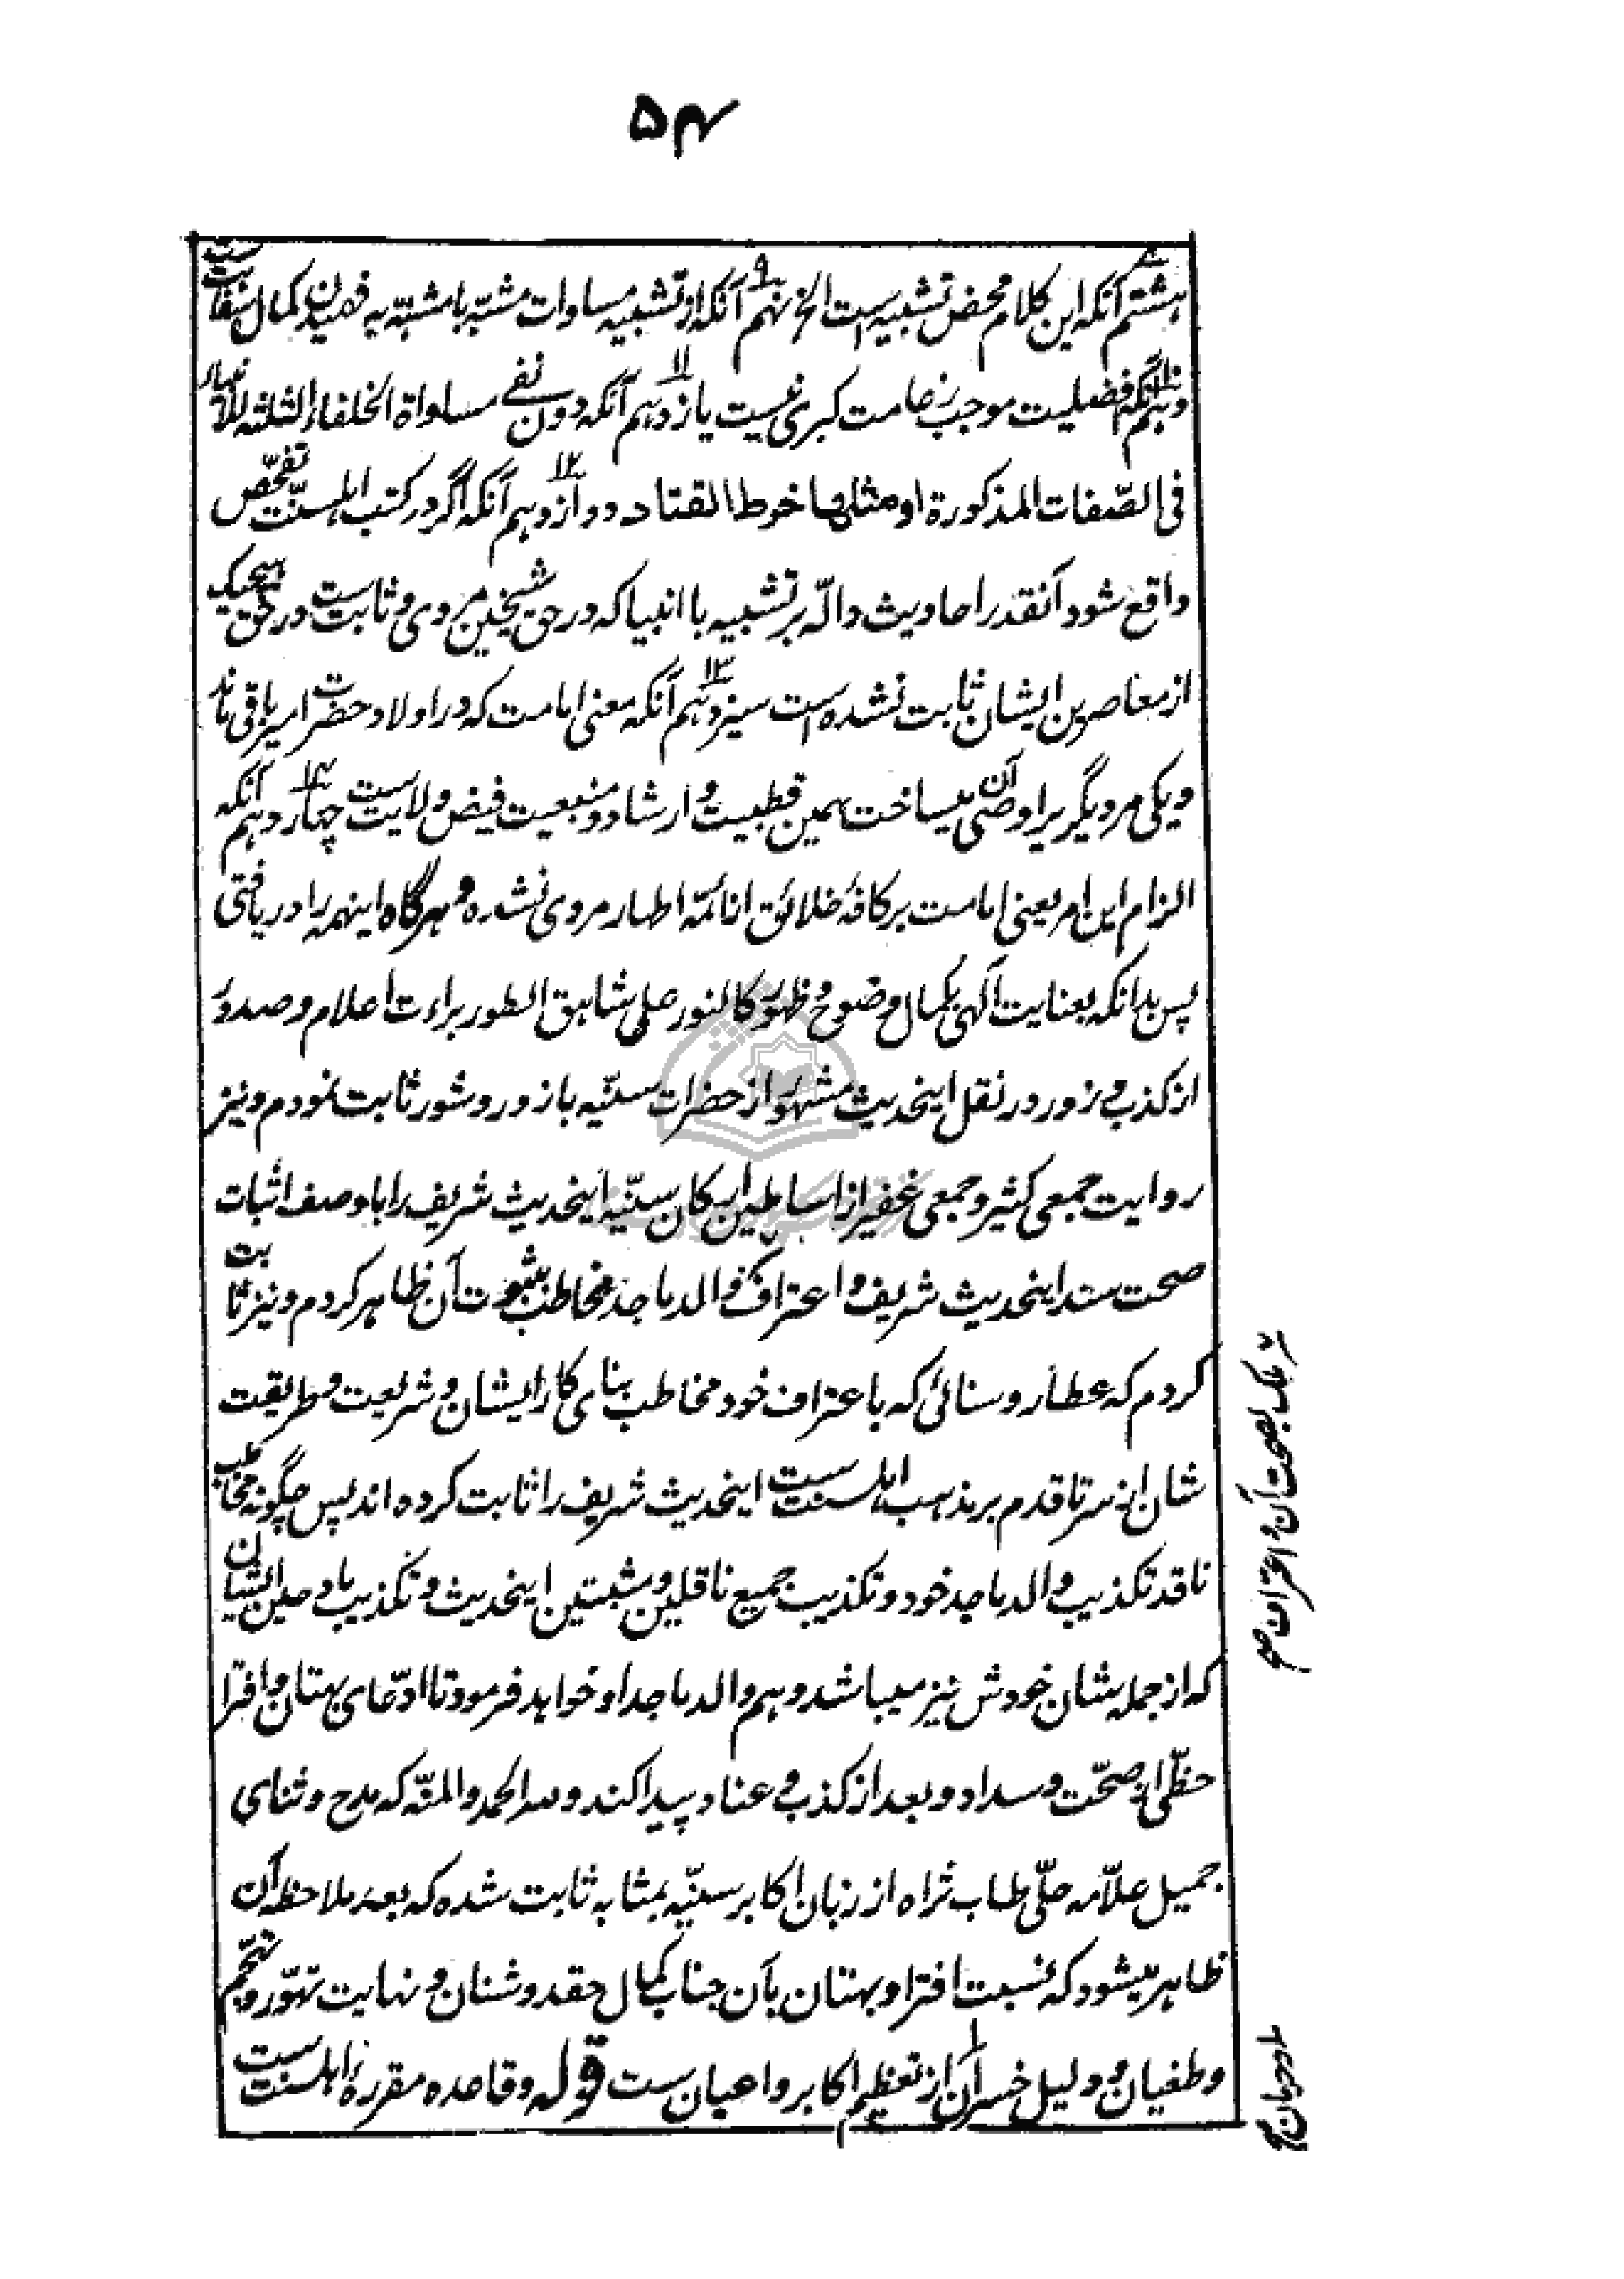 ۵۴
هشتم آنکه این کلام محض تشبیه است الخ نهم آنکه از تشبیه مساوات مشبّه با مشبّه به فهمیدن کمال سفاهت ست
دهم آنکه افضلیت موجب زعامت کبری نیست یازدهم آنکه دون نفی مساواة الخلفاء الثلثة للأنبیاء
فی الصّفات المذکورة او مثلها خرط القتاد دوازدهم آنکه اگر در کتب اهلسنّت تفحّص
واقع شود آنقدر احادیث دالّه بر تشبیه با انبیا که در حق شیخین مروی و ثابت است در حق هیچیک
از معاصرین ایشان ثابت نشده است سیزدهم آنکه معنی امامت که در اولاد حضرت امیر باقی ماند
و یکی مر دیگریرا وصی آن میساخت همین قطبیت و ارشاد و منبعیت فیض ولایت است چهاردهم آنکه
الزام این امر یعنی امامت بر کافهٔ خلائق از ائمّه اطهار مروی نشده و هرگاه اینهمه را دریافتی
پس بدانکه بعنایت آلهی بکمال وضوح و ظهور کالنور علی شاهق الطور براءت اعلام و صدور
از کذب و زور در نقل اینحدیث مشهور از حضرات سنیّه بازور و شور ثابت نمودم و نیز
روایت جمعی کثیر و جمعی غفیر از اساطین ارکان سنیّه اینحدیث شریف را با وصف اثبات
صحت سند اینحدیث شریف و اعتراف والد ماجد مخاطب بثبوت آن ظاهر کردم و نیز ثابت
کردم که عطار و سنائی که باعتراف خود مخاطب بنای کار ایشان و شریعت و طریقت
شان از سر تا قدم بر مذهب اهلسنت ست اینحدیث شریف را ثابت کرده اند پس چگونه مخاطب
ناقد تکذیب والد ماجد خود و تکذیب جمیع ناقلین و مثبتین اینحدیث و تکذیب مادحین ایشان
که از جمله شان خودش نیز میباشد و هم والد ماجد او خواهد فرمود تا ادّعای بهتان و افترا
حظّی از صحّت و سداد و بعد از کذب و عناد پیدا کند و لله الحمد والمنّه که مدح و ثنای
جمیل علاّمه حلّی طاب ثراه از زبان اکابر سنیّه بمثابه ثابت شده که بعد ملاحظه آن
ظاهر میشود که نسبت افترا و بهتان بآن جناب کمال حقد و شنان و نهایت تهوّر و تهجّم
و طغیان و دلیل خسران از تعظیم اکابر و اعیان ست قوله و قاعده مقررهٔ اهلسنت ست
بلک بصحت آن و اعتراف
و حرمان